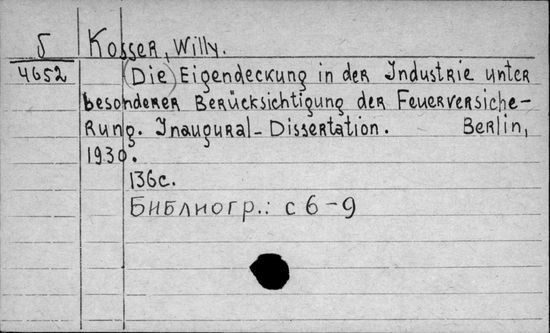 δ Kosser, Willy.
4652 (Die) Eigendeckung in der Industrie unter
besonderer Berücksichtigung der Feuerversiche-
rung. Inaugural-Dissertation. Berlin,
1930.
136c.
Библиогр.: с 6-9